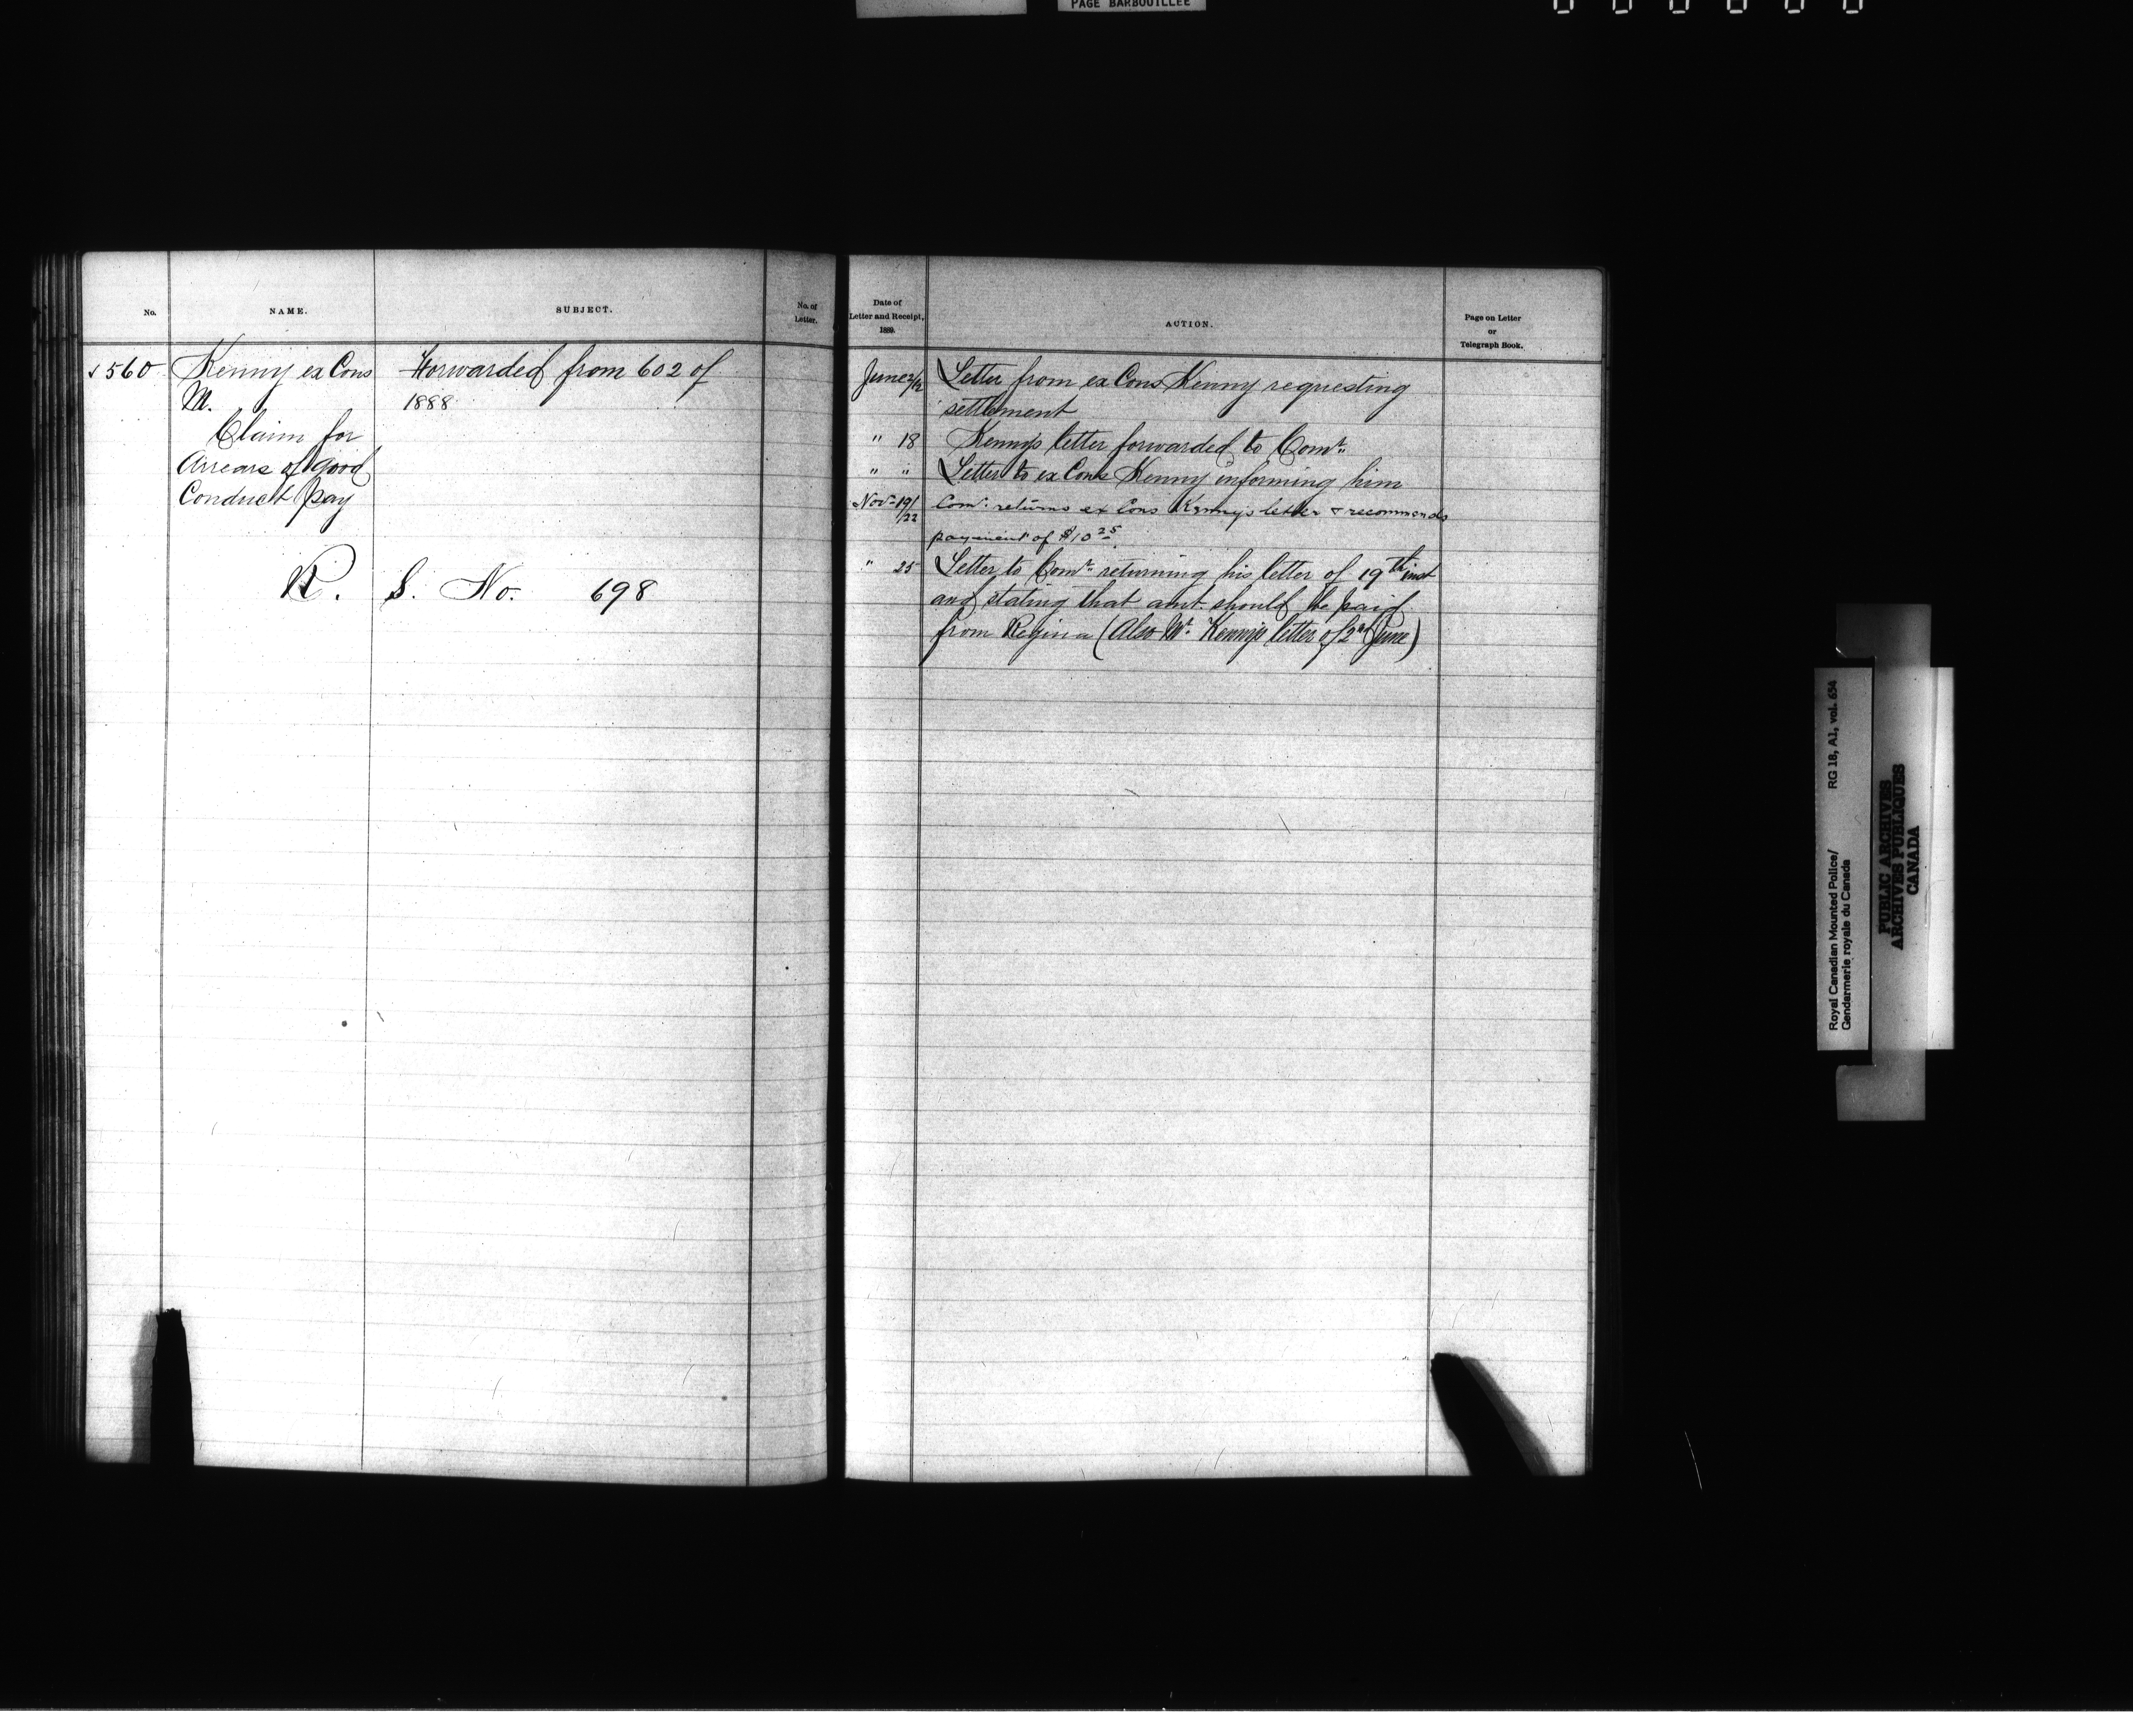 PAGE BARBOUILLÉE
No.
NAME.
SUBJECT.
No. of
Letter.
Date of
Letter and Receipt,
1889.
ACTION.
Page on Letter
or
Telegraph Book.
✓ 560
Kenny ex Cons
M.
Claim for
Arrears of good
Conduct pay
Forwarded from 602 of
1888
R. S. No. 698
June 2/12 Letter from ex Cons Kenny requesting
settlement
" 18 Kenny's letter forwarded to Comr.
" " Letter to ex Cons Kenny informing him
Nov. 19/22 Comr. returns ex Cons Kenny's letter & recommends
payment of $10 25
" 25 Letter to Comr. returning his letter of 19th inst
and stating that amt. should be paid
from Regina (Also Mr. Kenny's letter of 2nd June)
Royal Canadian Mounted Police/ RG 18, A1, vol. 654
Gendarmerie royale du Canada
PUBLIC ARCHIVES
ARCHIVES PUBLIQUES
CANADA